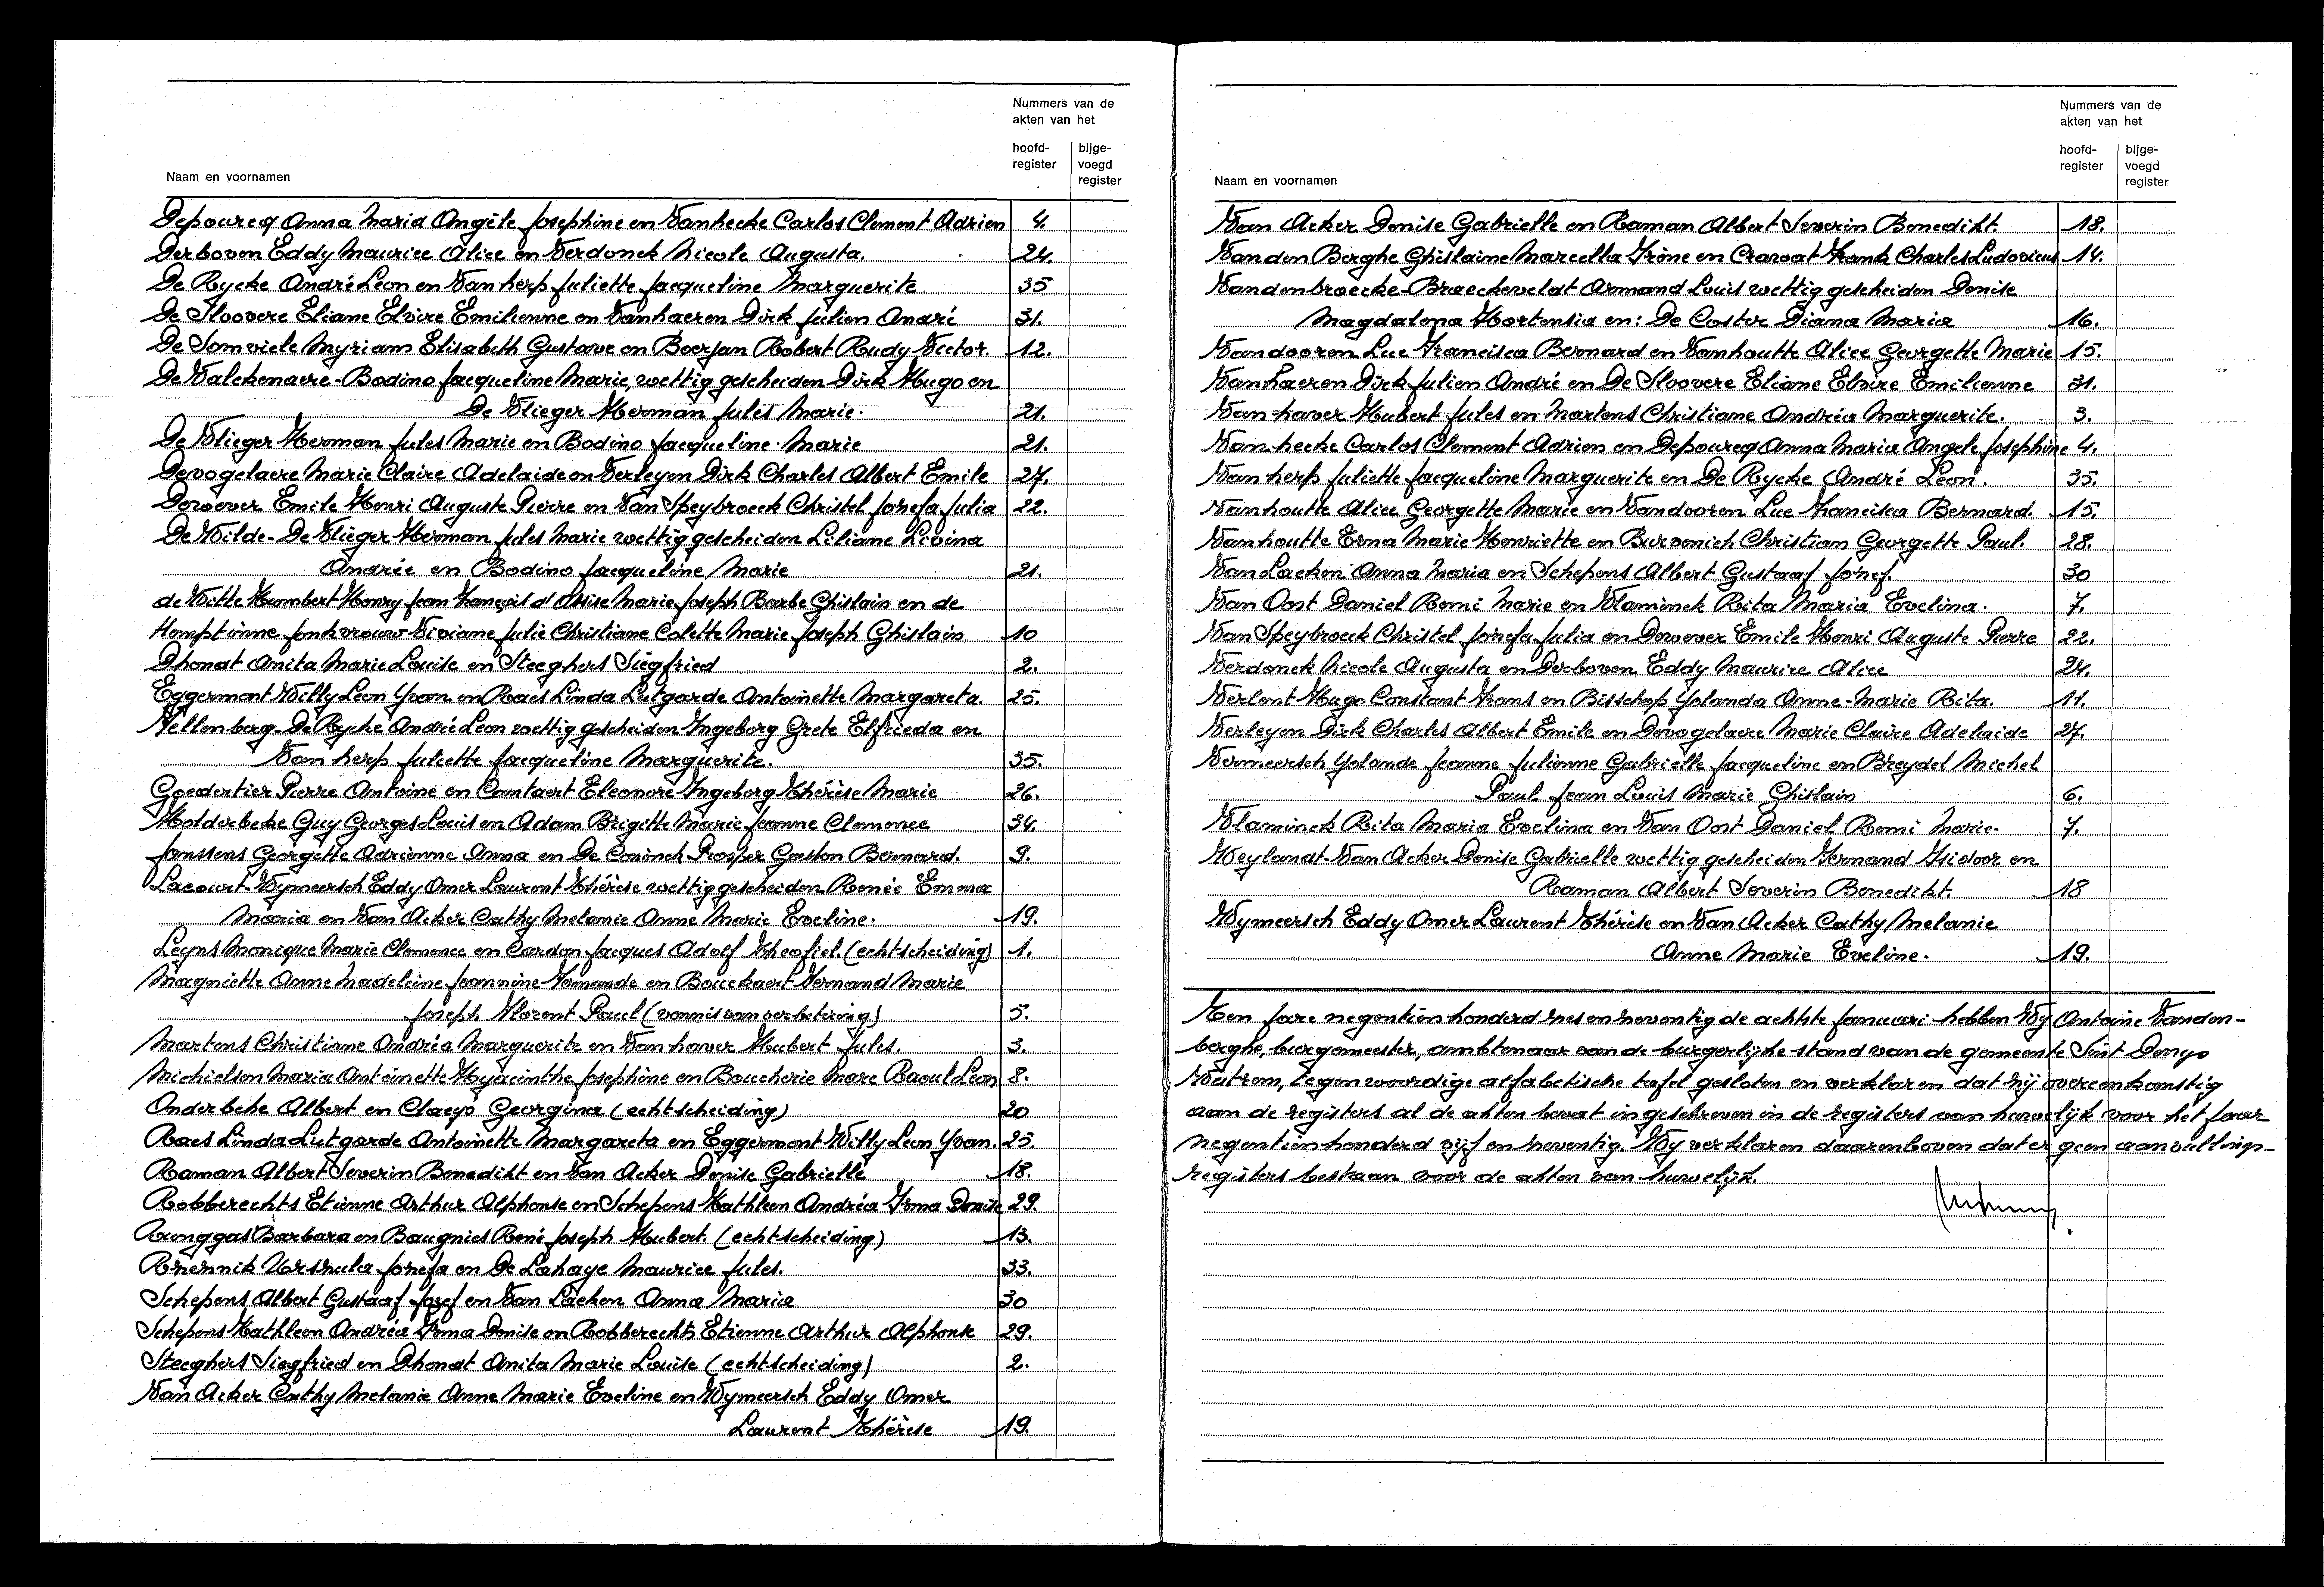 Nummers van de
akten van het
hoofd-
register
bijge-
voegd
register
Naam en voornamen
Depourcq Anna Maria Angèle Josephine en Vanhecke Carlos Clement Adrien 4.
Derboven Eddy Maurice Alice en Verdonck Nicole Augusta. 24.
De Rycke André Leon en Vanherp Juliette Jacqueline Marguerite 35
De Sloovere Eliane Elvire Emilienne en Vanhaeren Dirk Julien André 31.
De Somviele Myriam Elisabeth Gustave en Boerjan Robert Rudy Victor. 12.
De Valckenaere-Bodino Jacqueline Marie, wettig gescheiden Dirk Hugo en
De Vlieger Herman Jules Marie. 21.
De Vlieger Herman Jules Marie en Bodino Jacqueline Marie 21.
Devogelaere Marie Claire Adelaide en Verleyen Dirk Charles Albert Emile 27.
Dewever Emile Henri Auguste Pierre en Van Speybroeck Christel Jozefa Julia 22.
De Wilde-De Vlieger Herman Jules Marie wettig gescheiden Liliane Livina
Andrée en Bodino Jacqueline Marie 21.
de Witte Humbert Henry Jean François d'Assise Marie Joseph Barbe Ghislain en de
Hemptinne Jonkvrouw Viviane Julie Christiane Colette Marie Joseph Ghislain 10
Dhondt Anita Marie Louise en Steeghers Siegfried 2.
Eggermont Willy Leon Yvan en Raes Linda Lutgarde Antoinette Margareta. 25.
Fellenberg-De Rycke André Leon wettig gescheiden Ingeborg Grete Elfrieda en
Vanherp Juliette Jacqueline Marguerite. 35.
Goedertier Pierre Antoine en Cantaert Eleonore Ingeborg Thérèse Marie 26.
Holderbeke Guy Georges Louis en Adam Brigitte Marie Jeanne Clemence 34.
Janssens Georgette Adrienne Anna en De Coninck Prosper Gaston Bernard. 9.
Lacourt-Wymeersch Eddy Omer Laurent Thérèse wettig gescheiden Renée Emma
Maria en Van Acker Cathy Melanie Anne Marie Eveline. 19.
Leyns Monique Marie Clemence en Cardon Jacques Adolf Theofiel. (echtscheiding) 1.
Magniette Anne Madeleine Jeannine Fernande en Bouckaert Fernand Marie
Joseph Florent Paul (vonnis van verbetering) 5.
Martens Christiane Andréa Marguerite en Vanhaver Hubert Jules. 3.
Michielsen Maria Antoinette Hyacinthe Josephine en Boucherie Marc Raoul Leon 8.
Onderbeke Albert en Claeys Georgina (echtscheiding) 20
Raes Linda Lutgarde Antoinette Margareta en Eggermont Willy Leon Yvan. 25.
Raman Albert Severin Benedikt en Van Acker Denise Gabrielle 18.
Robberechts Etienne Arthur Alphonse en Schepens Kathleen Andréa Irma Denise 29.
Runggas Barbara en Baugnies René Joseph Hubert. (echtscheiding) 13.
Rzeznik Urszula Jozefa en De Lahaye Maurice Jules. 33.
Schepens Albert Gustaaf Jozef en Van Laeken Anna Maria 30
Schepens Kathleen Andréa Irma Denise en Robberechts Etienne Arthur Alphonse 29.
Steeghers Siegfried en Dhondt Anita Marie Louise (echtscheiding) 2.
Van Acker Cathy Melanie Anne Marie Eveline en Wymeersch Eddy Omer
Laurent Thérèse 19.
Nummers van de
akten van het
hoofd-
register
bijge-
voegd
register
Naam en voornamen
Van Acker Denise Gabrielle en Raman Albert Severin Benedikt. 18.
Vanden Berghe Ghislaine Marcella Irène en Cravat Frank Charles Ludovicus 14.
Vandenbroecke-Braeckeveldt Armand Louis wettig gescheiden Denise
Magdalena Hortensia en: De Coster Diana Maria 16.
Vandooren Luc Francisca Bernard en Vanhoutte Alice Georgette Marie 15.
Vanhaeren Dirk Julien André en De Sloovere Eliane Elvire Emilienne 31.
Vanhaver Hubert Jules en Martens Christiane Andréa Marguerite. 3.
Vanhecke Carlos Clement Adrien en Depourcq Anna Maria Angele Josephine 4.
Vanherp Juliette Jacqueline Marguerite en De Rycke André Leon. 35.
Vanhoutte Alice Georgette Marie en Vandooren Luc Francisca Bernard. 15.
Vanhoutte Erna Marie Henriette en Burvenich Christian Georgette Paul. 28.
Van Laeken Anna Maria en Schepens Albert Gustaaf Jozef. 30
Van Oost Daniel Remi Marie en Vlaminck Rita Maria Evelina. 7.
Van Speybroeck Christel Jozefa Julia en Dewever Emile Henri Auguste Pierre 22.
Verdonck Nicole Augusta en Derboven Eddy Maurice Alice 24.
Verlent Hugo Constant Frans en Bisschop Yolanda Anne-Marie Rita. 11.
Verleyen Dirk Charles Albert Emile en Devogelaere Marie Claire Adelaide 27.
Vermeersch Yolande Jeanne Julienne Gabrielle Jacqueline en Breydel Michel
Paul Jean Louis Marie Ghislain 6.
Vlaminck Rita Maria Evelina en Van Oost Daniel Remi Marie. 7.
Weylandt-Van Acker Denise Gabrielle wettig gescheiden Fernand Isidoor en
Raman Albert Severin Benedikt. 18
Wymeersch Eddy Omer Laurent Thérèse en Van Acker Cathy Melanie
Anne Marie Eveline. 19.
Ten jare negentienhonderd zesennegentig de achtste januari hebben Wij Antoine Vanden-
berghe, burgemeester, ambtenaar van de burgerlijke stand van de gemeente Sint Denijs
Westrem, tegenwoordige alfabetische tafel gesloten en verklaren dat zij overeenkomstig
aan de registers al de akten bevat ingeschreven in de registers van huwelijk voor het jaar
negentienhonderd vijf en neventig. Wij verklaren daarenboven dat er geen aanvullings-
registers bestaan voor de akten van huwelijk.